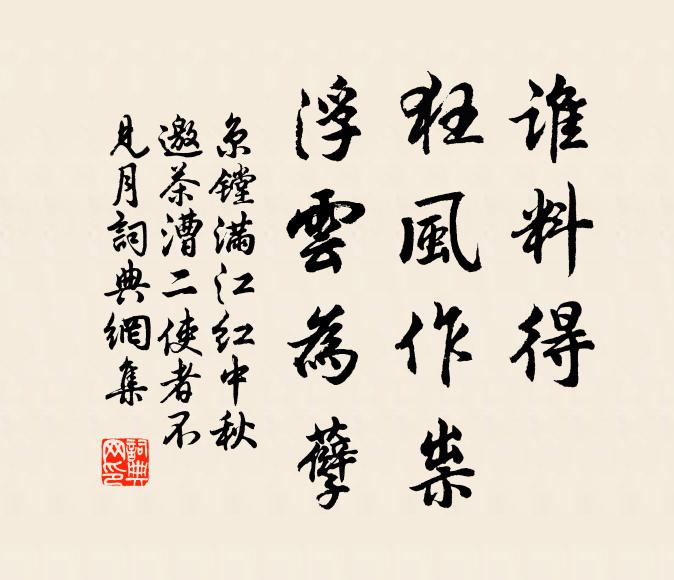 谁料得
狂風作祟
浮雲為孽
京镗满江红中秋
邀茶漕二使者不
見月詞典網集
詞典
网印